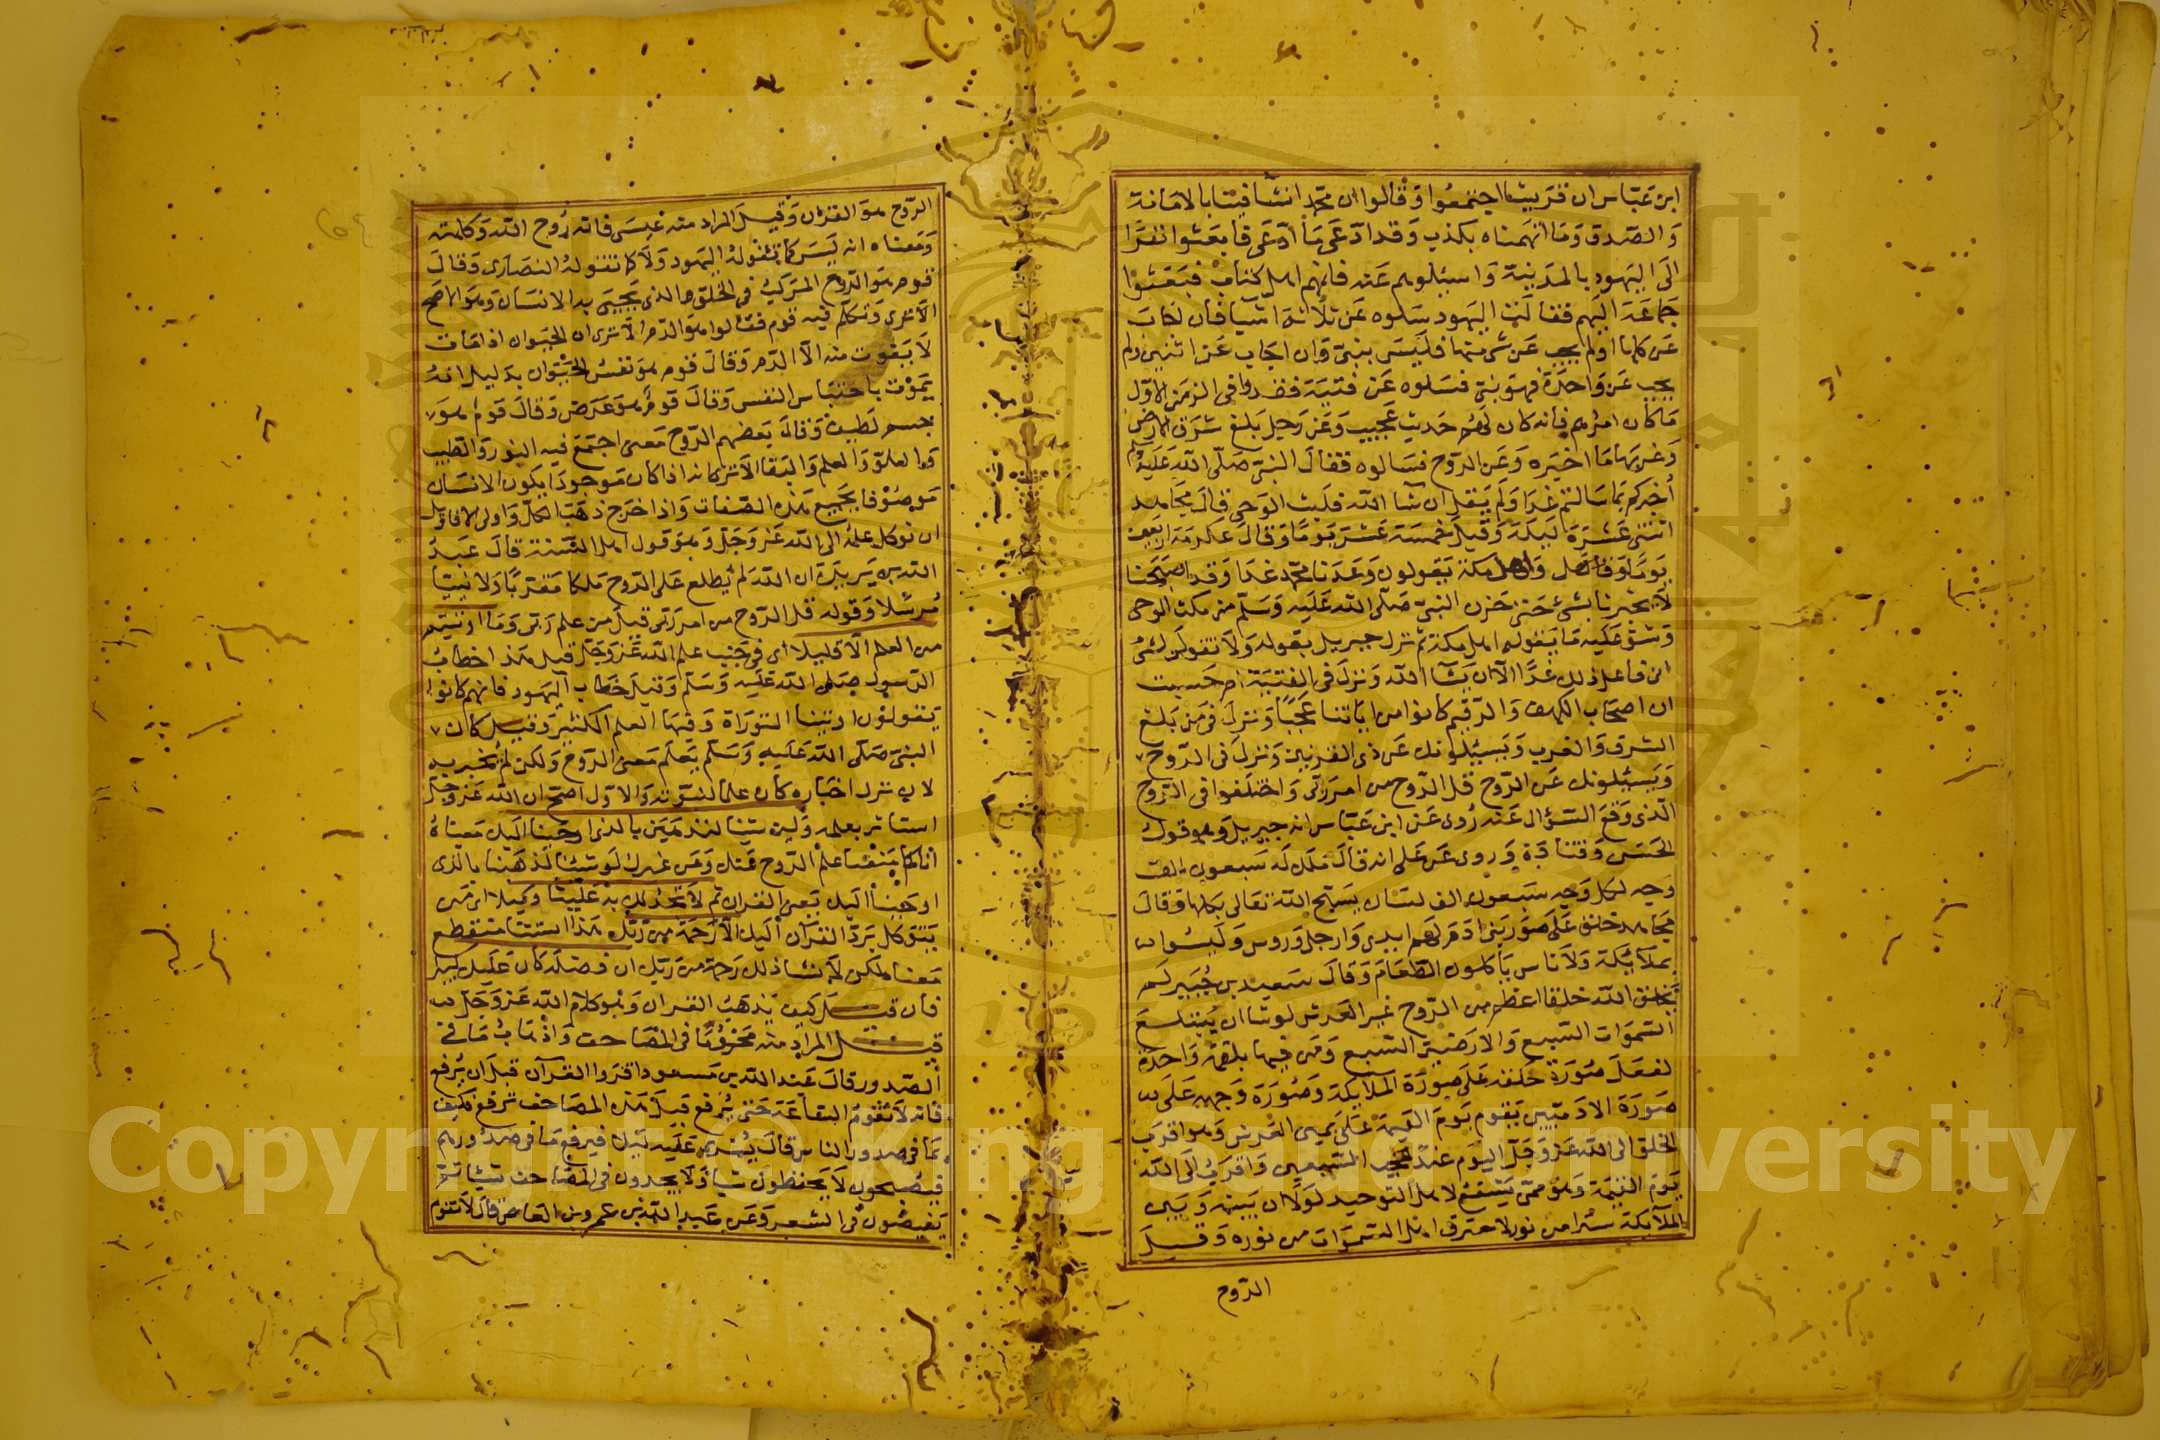 ابن عباس ان قريشا اجتمعوا وقالوا ان محمدا نشا فينا بالامانة
والصدق وما اتهمناه بكذب وقد ادعى ما ادعى فابعثوا نفرا
الى اليهود بالمدينة واسئلوهم عنه فانهم اهل كتاب فبعثوا
جماعة اليهم فقالت اليهود سلوه عن ثلاثة اشيا فان اجاب
عن كلها او لم يجب عن شى منها فليس بنبى وان اجاب عن اثنين ولم
يجب عن واحدة فهو نبى فسلوه عن فتية فقدوا فى الزمن الاول
ما كان امرهم فانه كان لهم حديث عجيب وعن رجل بلغ شرق الارض
وغربها ما اخبره وعن الروح فسالوه فقال النبى صلى الله عليه وسلم
أخبركم بما سالتم غدا ولم يقل ان شآ الله فلبث الوحى قال مجاهد
اثنتى عشرة ليلة وقيل خمسة عشر يوما وقال عكرمة اربعين
يوما واهل مكة يقولون وعدنا محمد غدا وقد اصبحنا
لا يخبرنا بشئ حتى حزن النبى صلى الله عليه وسلم من مكث الوحى
وشق عليه ما يقوله اهل مكة ثم نزل جبريل بقوله ولا تقولن لشئ
انى فاعل ذلك غدا الا ان يشآ الله ونزل فى الفتية ام حسبت
ان اصحاب الكهف والرقيم كانوا من اياتنا عجبا ونزل فى من بلغ
الشرق والغرب ويسئلونك عن ذى القرنين ونزل فى الروح
ويسئلونك عن الروح قل الروح من امر ربى واختلفوا فى الروح
الذى وقع السؤال عنه روى عن ابن عباس انه جبريل وهو قول
الحسن وقتادة وروى عن على انه قال ملك له سبعون الف
وجه لكل وجه سبعون الف لسان يسبح الله تعالى بكلها وقال
مجاهد خلق على صور بنى ادم لهم ايدى وارجل وروس وليسوا
بملآيكة ولا ناس ياكلون الطعام وقال سعيد بن جبير لم
يخلق الله خلقا اعظم من الروح غير العرش لو شا ان يبتلع
السموات السبع والارضين السبع ومن فيها بلقمة واحدة
لفعل صورة خلقه على صورة الملايكة وصورة وجهه على
صورة الادميين يقوم يوم القيمة على يمين العرش وهو اقرب
الخلق الى الله عز وجل اليوم عند الحجب السبعين واقرب الى الله
يوم القيمة وهو ممن يشفع لاهل التوحيد لولا ان بينه وبين
الملآيكة سترا من نور لاحترق اهل السموات من نوره وقيل
الروح
الروح هو القرءان وقيل المراد منه عيسى فانه روح الله وكلمته
ومعناه انه ليس كما تقوله اليهود ولا كما تقوله النصارى وقال
قوم هو الروح المركب فى الخلق الذى يحيى به الانسان وهو الاصح
الا ترى وتكلم فيه قوم فقالوا هو الدم الا ترى ان الحيوان اذا مات
لا يفوت منه الا الدم وقال قوم هو نفس الحيوان بدليل انه
يموت باحتباس النفس وقال قوم هو عرض وقال قوم هو
جسم لطيف وقال بعضهم الروح معنى اجتمع فيه النور والطيب
والعلو والعلم والبقا الا ترى انه اذا كان موجودا يكون الانسان
موصوفا بجميع هذه الصفات واذا خرج ذهب الكل واولى الاقاويل
ان نوكل علمه الى الله عز وجل وهو قول اهل السنة قال عبد
الله بن بريدة ان الله لم يطلع على الروح ملكا مقربا ولا نبيا
مرسلا وقوله قل الروح من امر ربى قيل من علم ربى وما اوتيتم
من العلم الا قليلا اى فى جنب علم الله عز وجل قيل هذا خطاب
الرسول صلى الله عليه وسلم وقيل خطاب اليهود فانهم كانوا
يقولون اوتينا التوراة وفيها العلم الكثير وقيل كان
النبى صلى الله عليه وسلم يعلم معنى الروح ولكن لم يخبر به
لان ترك اخباره كان علما لنبوته والاول اصح ان الله عز وجل
استاثر بعلمه ولين شينا لنذهبن بالذى اوحينا اليك معناه
انا كما منعنا علم الروح عنك وعن غيرك لو شئنا لذهبنا بالذى
اوحينا اليك يعنى القران ثم لا تجد لك به علينا وكيلا اى من
يتوكل برد القرآن اليك الا رحمة من ربك هذا استثنا منقطع
معناه لكن لا نشا ذلك رحمة من ربك ان فضله كان عليك كبيرا
فان قيل كيف يذهب القران وهو كلام الله عز وجل
قيل المراد منه محو ما فى المصاحف واذهاب ما فى
الصدور قال عبد الله بن مسعود اقروا القرآن قبل ان يرفع
فانه لا تقوم الساعة حتى يرفع قيل هذه المصاحف ترفع فكيف
بما فى صدور الناس قال يسرى عليه ليلا فيرفع ما فى صدورهم
فيصبحون لا يحفظون شيا ولا يجدون فى المصاحف شيا ثم
يفيضون فى الشعر وعن عبد الله بن عمرو بن العاص قال لا تقوم
Copyright © King Saud University